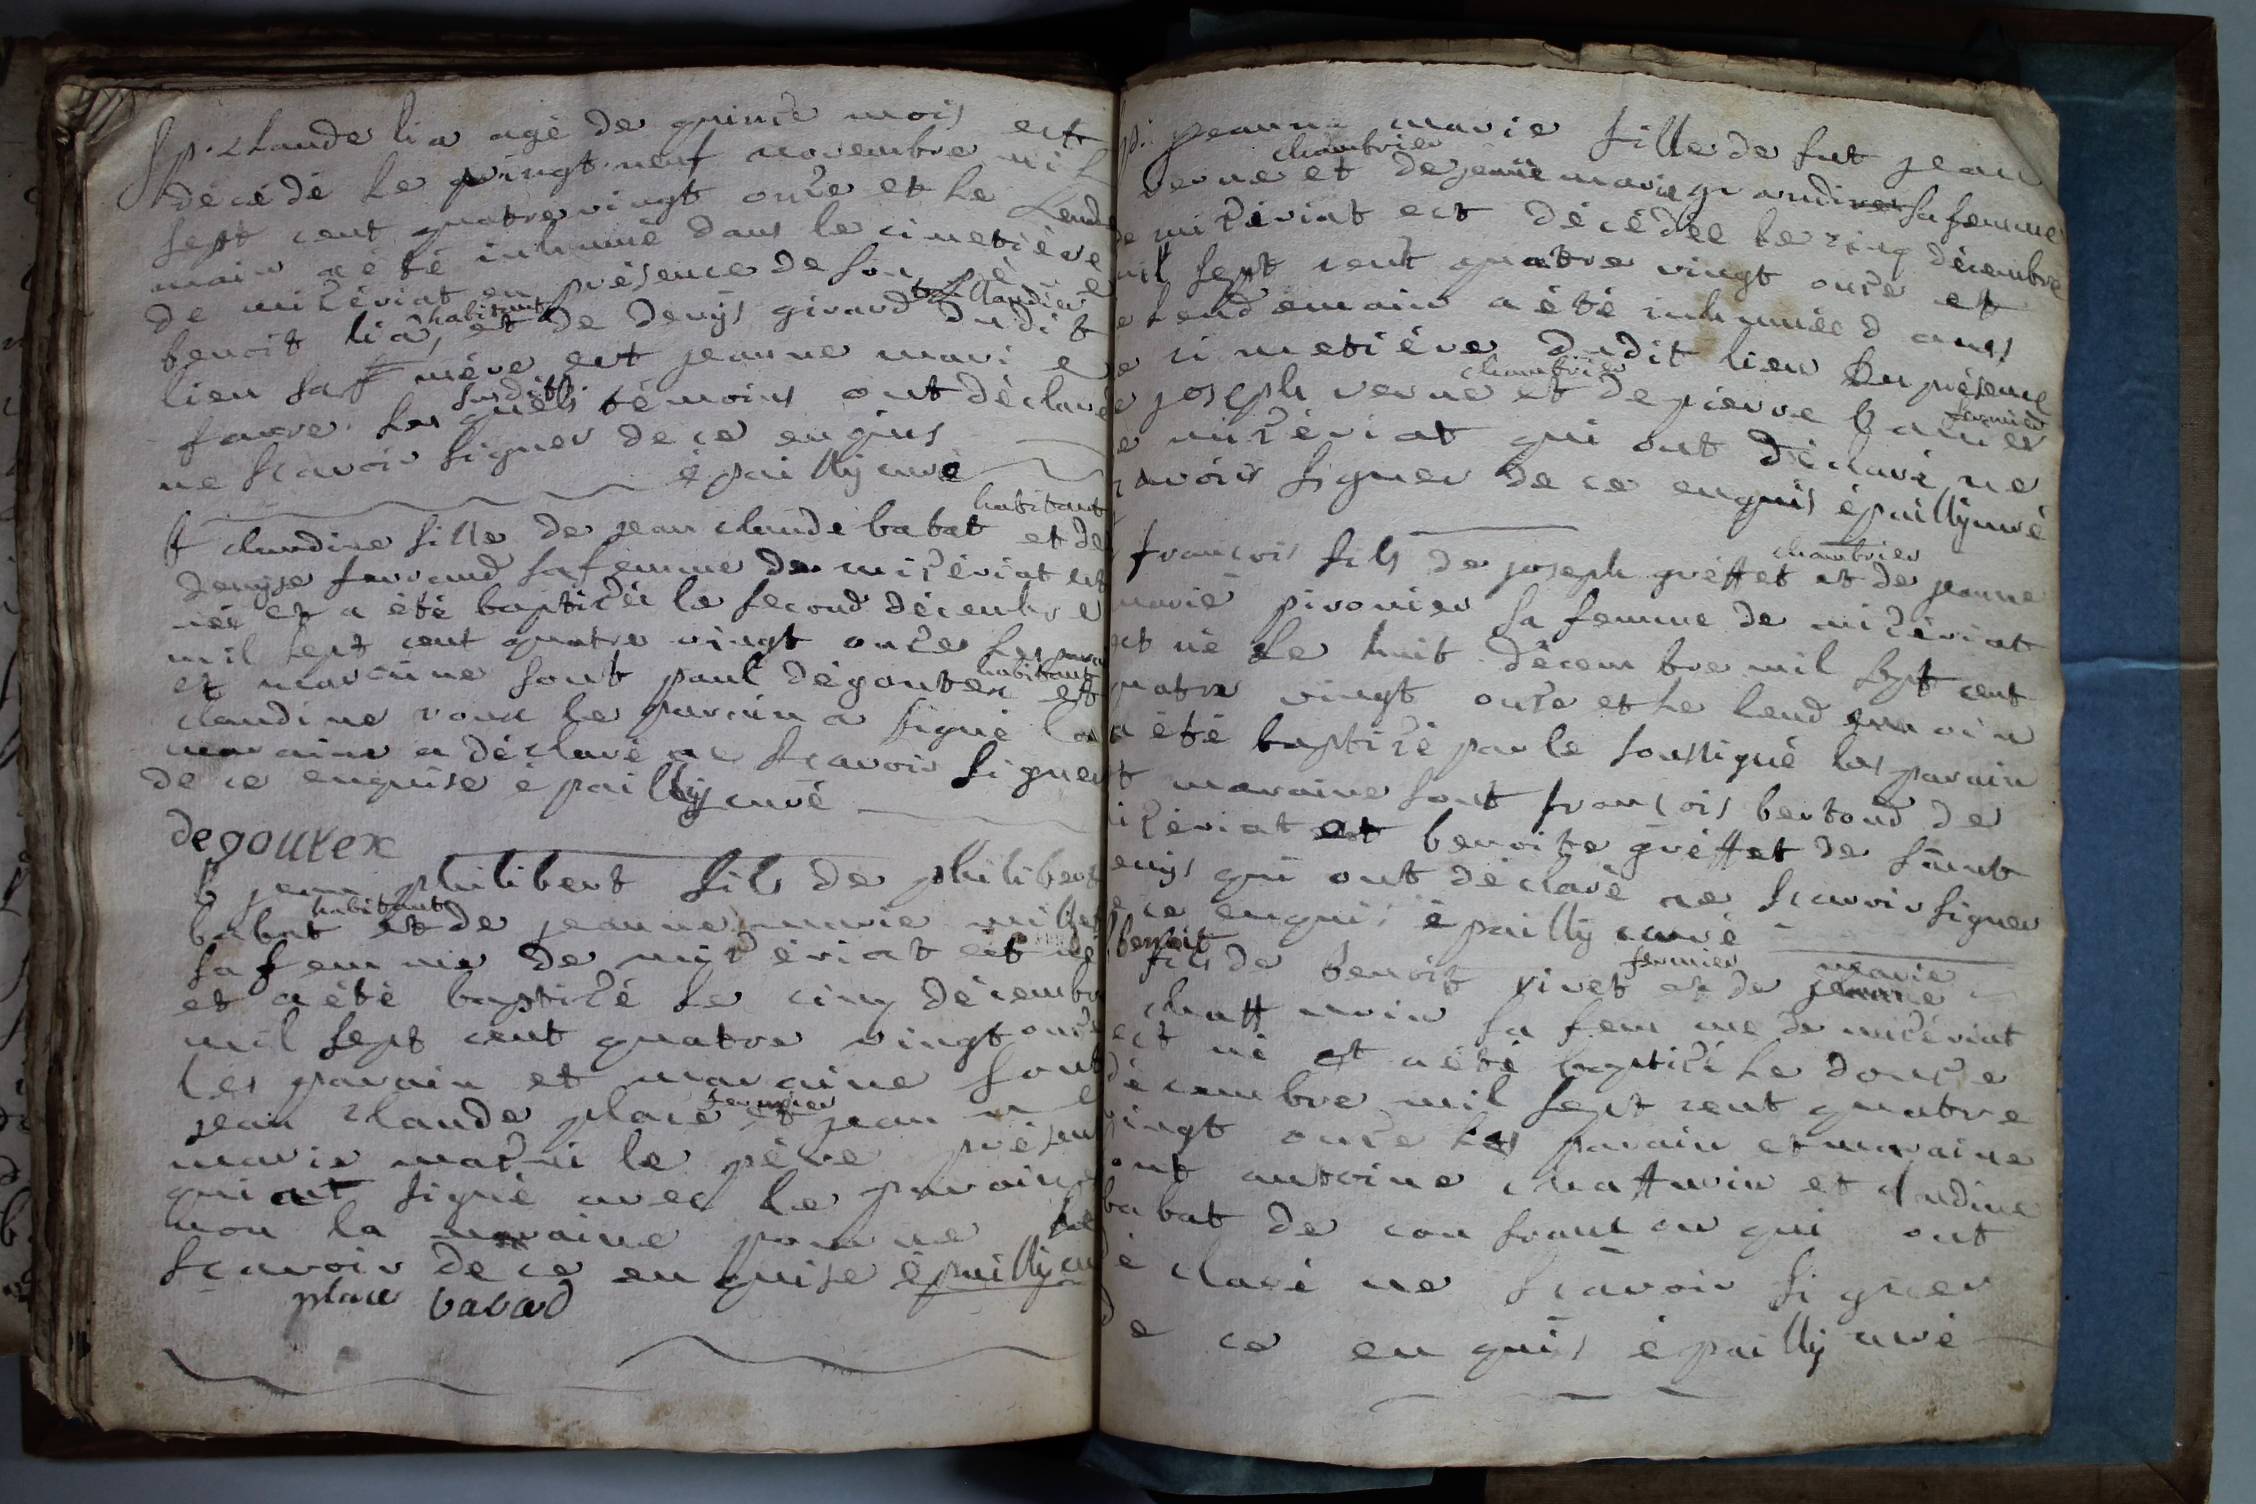 Sp. Claude lia agé de quinze mois est
décédé le vingt neuf novembre mil
sept cent quatre vingt onze et le lende
main a été inhumé dans le cimetière
de mizériat en présence de son père
benoit lia, habitant et de denys girard taillandier dudit
lieu sa mère est jeanne marie
favre. Les quels susdits témoins ont déclaré
ne scavoir signer de ce enquis
épailly curé
B claudine fille de jean claude babat habitant et de
denyse ferrand sa femme de mizériat est
née et a été baptizée le second décembre
mil sept cent quatre vingt onze les parain
et maraine sont paul dégoutex habitant et
claudine roux le parain a signé la
maraine a déclaré ne scavoir signer
de ce enquise épailly curé
degoutex
B jean philibert fils de philibert
babat habitant et de jeanne marie millet
sa femme de myzériat est né
et a été baptizé le cinq décembre
mil sept cent quatre vingt onze
les parain et maraine sont
jean claude place fermier et jeanne
marie mazui le père présent
qui ont signé avec le parain
non la maraine pour ne
scavoir de ce enquise épailly cu
place babad
Sp: jeanne marie fille de fut jean
verne chambrier et de jeanne marie grandiver sa femme
de mizériat est décédée le cinq décembre
mil sept cent quatre vingt onze et
le lendemain a été inhumée dans
le cimetière dudit lieu En présence
de joseph verne chambrier et de pierre fermier
de mizériat qui ont déclaré ne
scavoir signer de ce enquis épailly curé
françois fils de joseph gréffet chambrier et de jeanne
marie pironier sa femme de mizériat
est né le huit décembre mil sept cent
quatre vingt onze et le lendemain
a été baptizé par le soussigné les parain
et maraine sont françois bertoud de
mizériat et benoite gréffet de saint
denys qui ont déclaré ne scavoir signer
de ce enquis épailly curé
benoit fils de benoit rivet fermier et de marie jeanne
chattunoir sa femme de mizériat
est né et a été baptizé le douze
décembre mil sept cent quatre
vingt onze les parain et maraine
sont antoine chattunoir et cludine
babat de confrancon qui ont
dé claré ne scavoir signer
de ce enquis épailly curé